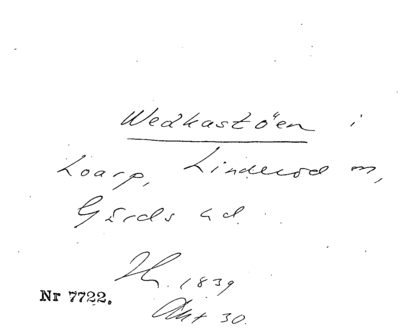 Wedkastöen i
Loarp, Linderöd m,
Gärds hd.
1839
Nr 7722.
Akt 30.